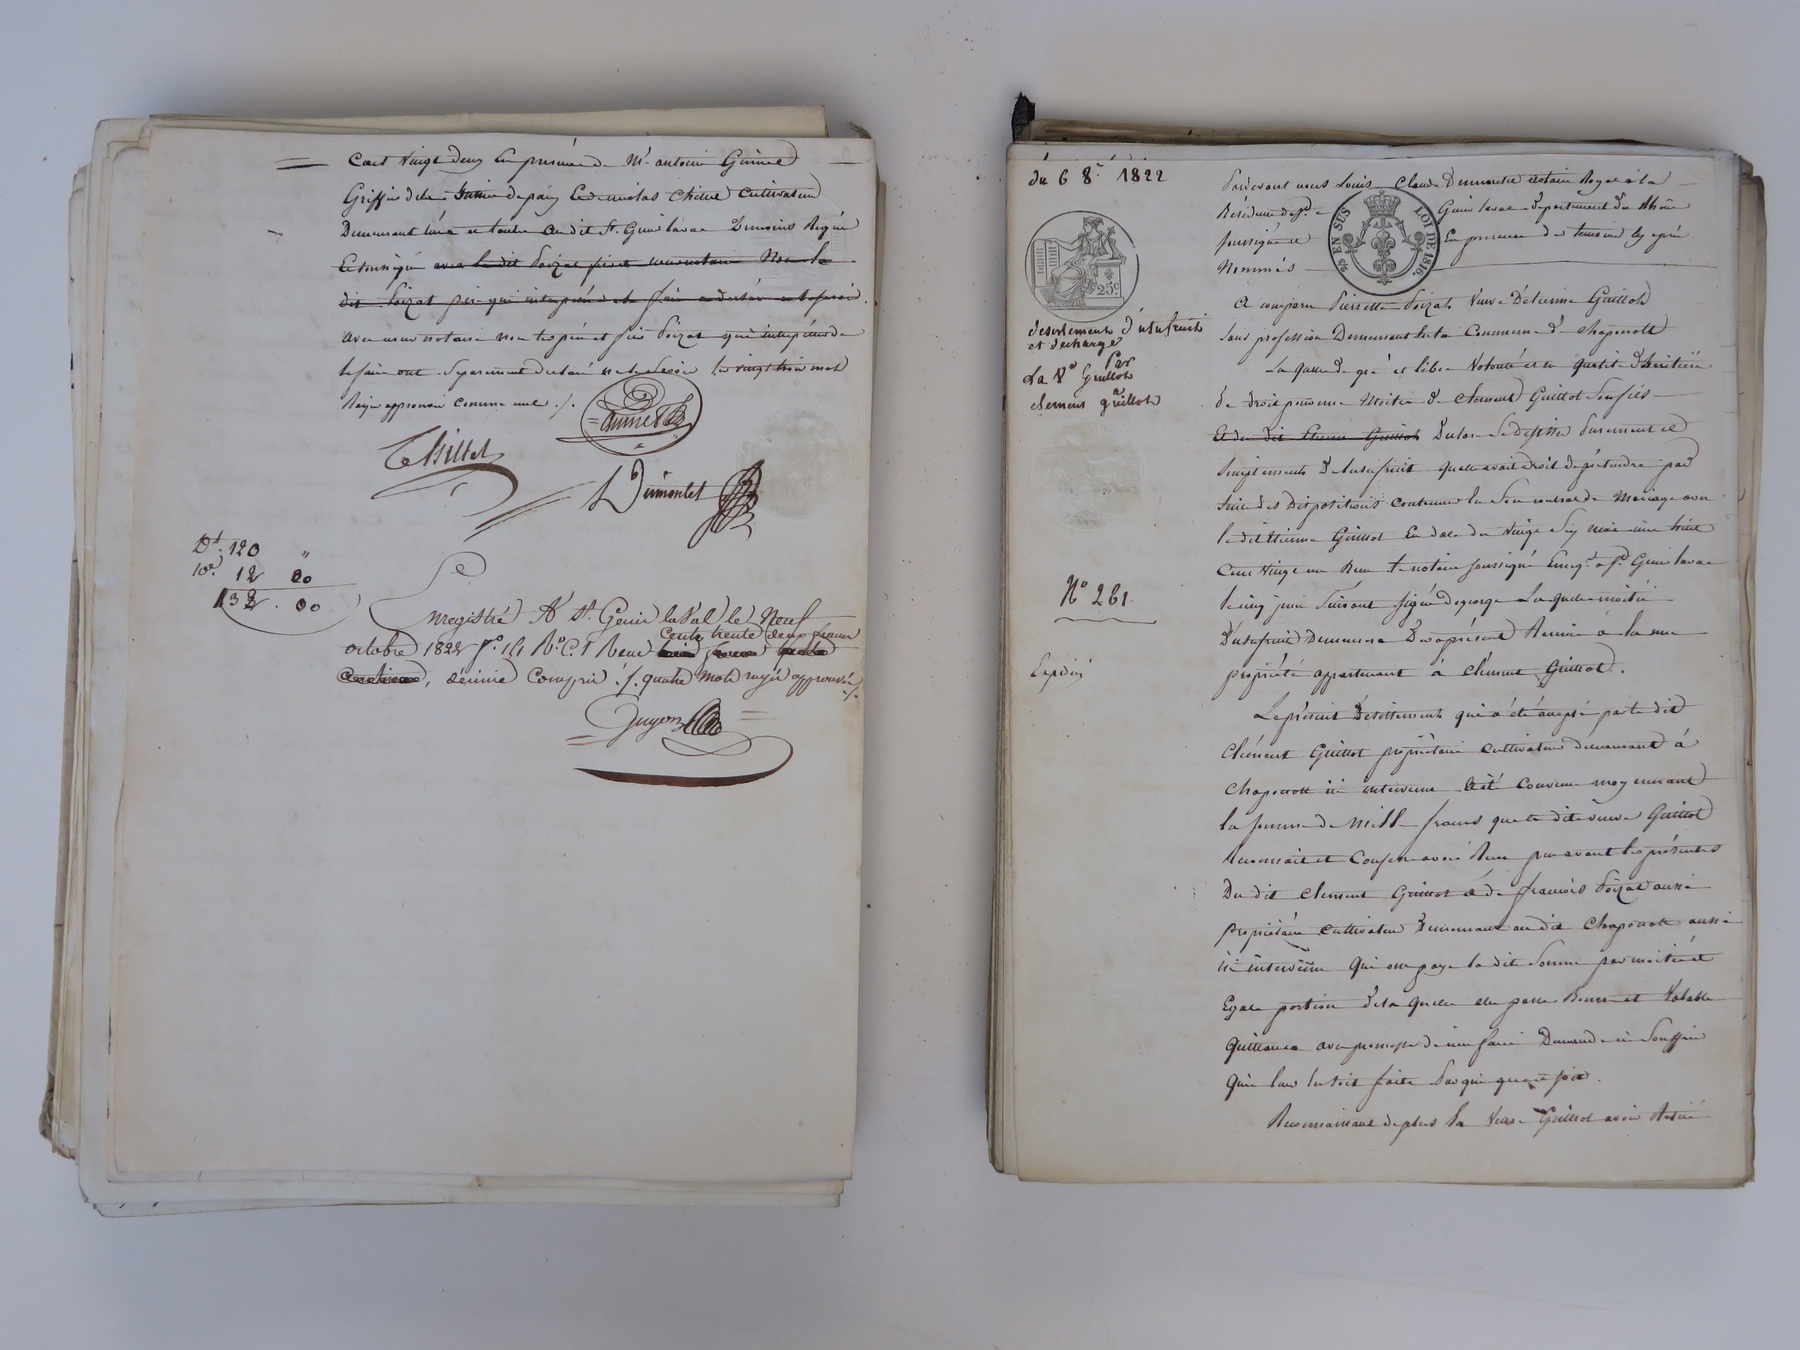 Cent vingt deux En présence de Mr. antoine Guinet
Griffier de la Justice de paix Et de nicolas Thillet Cultivateur
Demeurant tous en lieu au dit St. Genis laval Témoins Requis
Et soussignés avec le dit Poizat fils et nous notaire Non le
dit Poizat père qui interpellé de le faire a declaré ne le savoir.
avec nous notaire non les père et fils Poizat qui interpellés de
le faire ont séparement declaré ne le Savoir les vingt trois mots
Rayés approuvés comme nuls ./.
Guinet
Thillet
Dumontet
Dt. 120 "
10e. 12 00
132 . 00
Enregistré A St. Genis laval le Neuf
octobre 1822 fo. 161 Ro. C. 1 Reçu
Cents trente deux francs
centimes, décime Compris ./. quatre mots rayés approuvés ./.
Guyon
du 6 8e. 1822
desistement d'usufruit
et décharge
Par
La Ve Guillot
à
clement guillot
No 261
Expédié
EN SUS
LOI DE 1816.
25c
Pardevant nous Louis Claude Dumontet notaire Royal à la
Résidence de St. Genis laval département du Rhône
soussigné et En presence des temoins cy après
Nommés
A comparu Pierrette Poizat Veuve D'etienne Guillot
Sans profession Demeurant en la Commune de chaponost
La quelle de gré et libre Volonté et en qualité d'héritière
de droit pour une Moitié de Clement Guillot Son fils
Et du dit Etienne Guillot Declare Se desister Purement et
Simplement de l'usufruit quelle avait droit de prétendre par
Suite des Dispositions contenues en Son contrat de Mariage avec
le dit Etienne Guillot En date du Vingt Six mai mil huit
Cent Vingt un Reçu le notaire soussigné Enregé. à St. Genis laval
le cinq juin Suivant signé degeorge La quelle moitié
D'usufruit Demeurera Des à présent Réunie à la nue
propriété appartenant à Clément Guillot.
Le présent Désistement qui a été accepté par le dit
Clément Guillot propriétaire cultivateur demeurant à
Chaponost ici intervenu a été Convenu moyennant
la somme de Mille francs que la dite veuve Guillot
Reconnait et Confesse avoir Reçu par avant les présentes
Du dit Clement Guillot & de françois Poizat aussi
propriétaire cultivateur Demeurant au dit Chaponost aussi
ici intervenu Qui ont payé la dite Somme par moitié et
Egale portion de la quelle elle passe Bonne et Valable
Quittance avec promesse de n'en faire Demande ni Souffrir
Qu'il leur en soit faite Par qui que ce soit.
Reconnaissant de plus la Veuve Guillot avoir Retiré